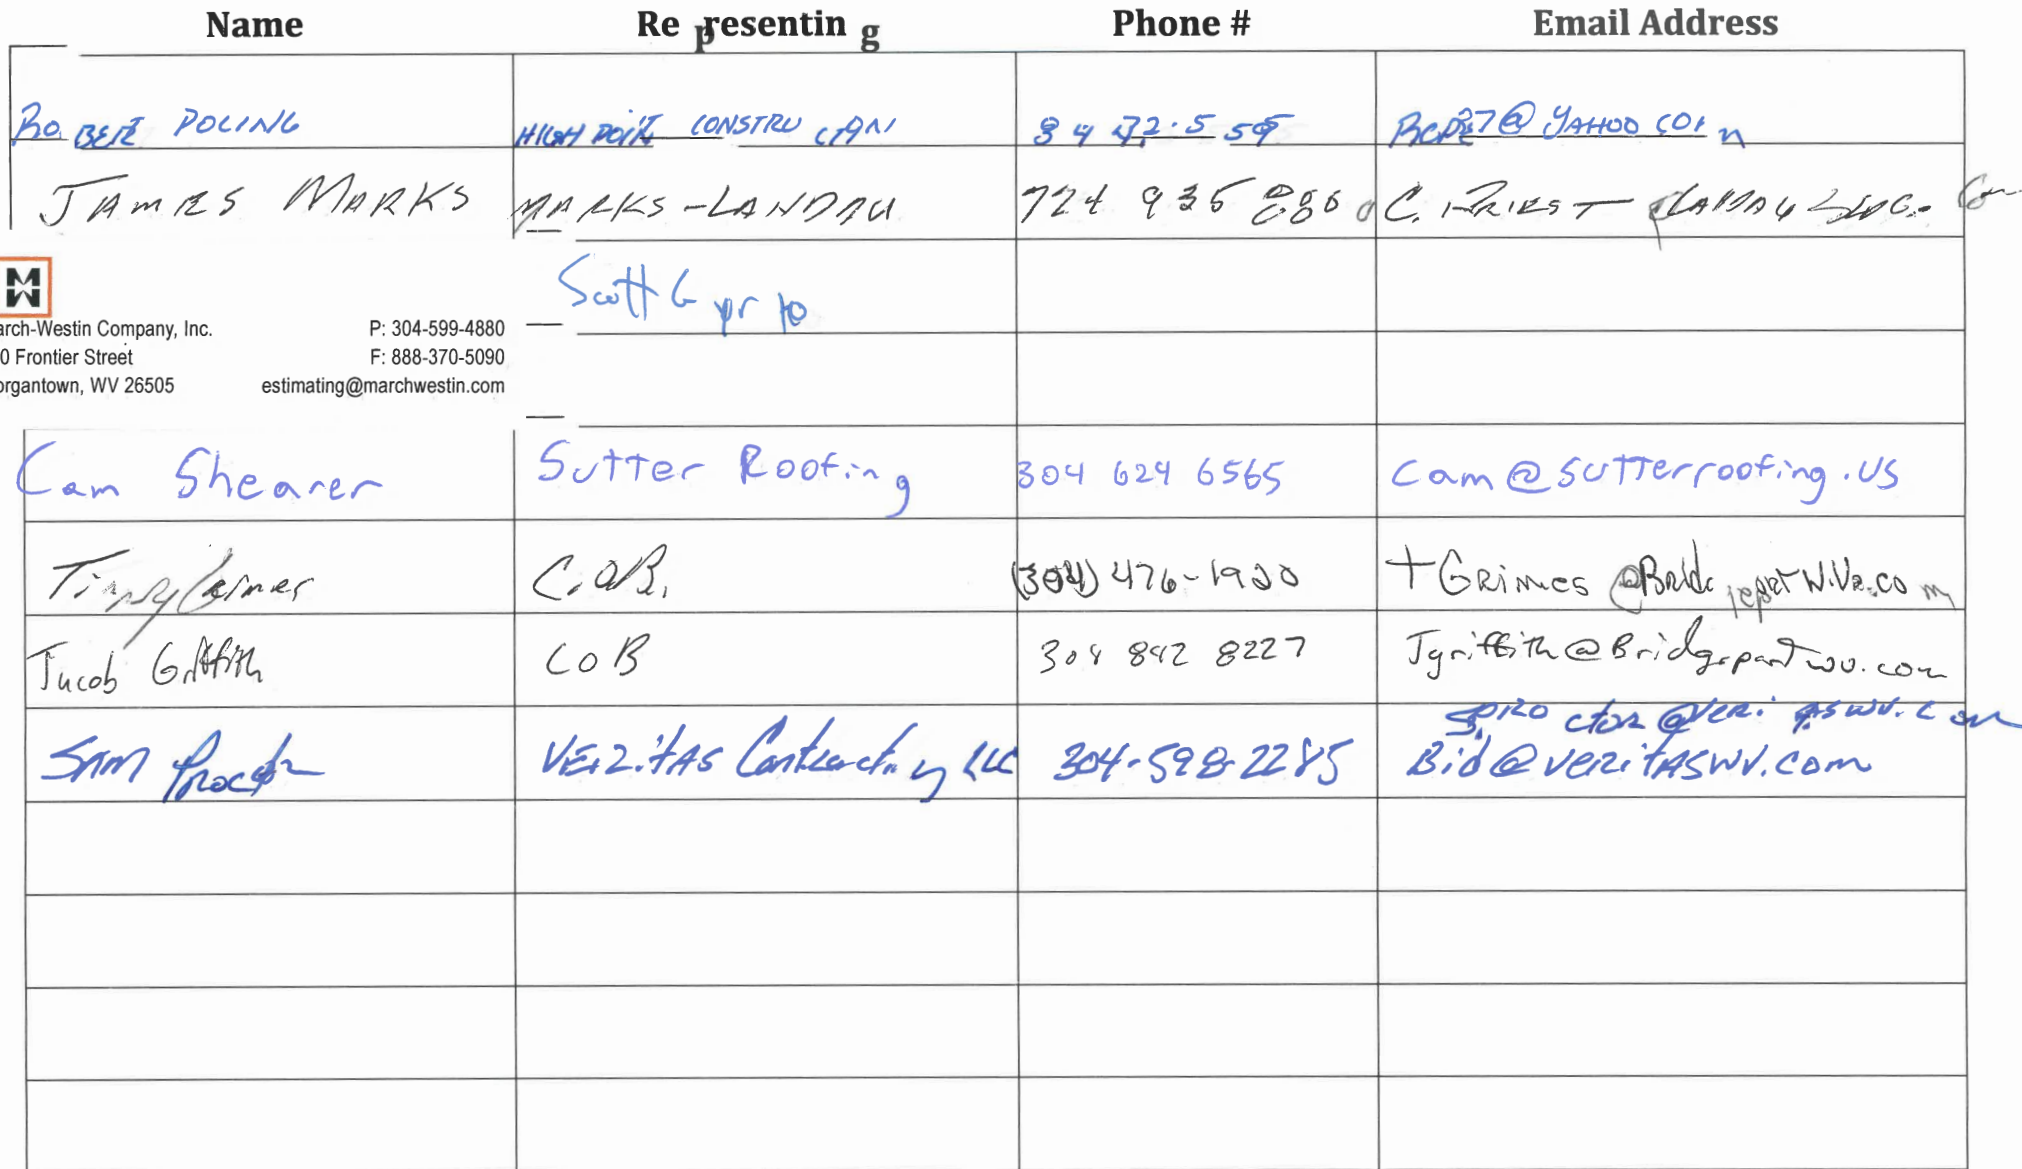 Name Representing Phone # Email Address
ROBERT POLING HIGH POINT CONSTRUCTION @YAHOO COM
JAMES MARKS MARKS-LANDAU 724 935 8800
MW
Scott
arch-Westin Company, Inc. P: 304-599-4880
0 Frontier Street F: 888-370-5090
organtown, WV 26505 estimating@marchwestin.com
Cam Shearer Sutter Roofing 304 624 6565 Cam@sutterroofing.us
C.O.B. (304) 476-1900 tGrimes@BridgeportWVa.com
Jacob Griffith COB 304 842 8227 Jgriffith@Bridgeportwv.com
sproctor@veritaswv.com
SAM Proctor VERITAS Contracting LLC 304-598-2285 Bid@veritaswv.com